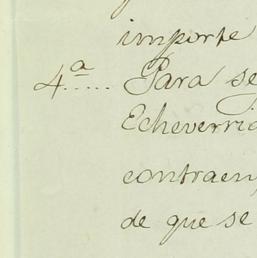 importe
4.ª..... Para se
Echeverria
contraen
de que se